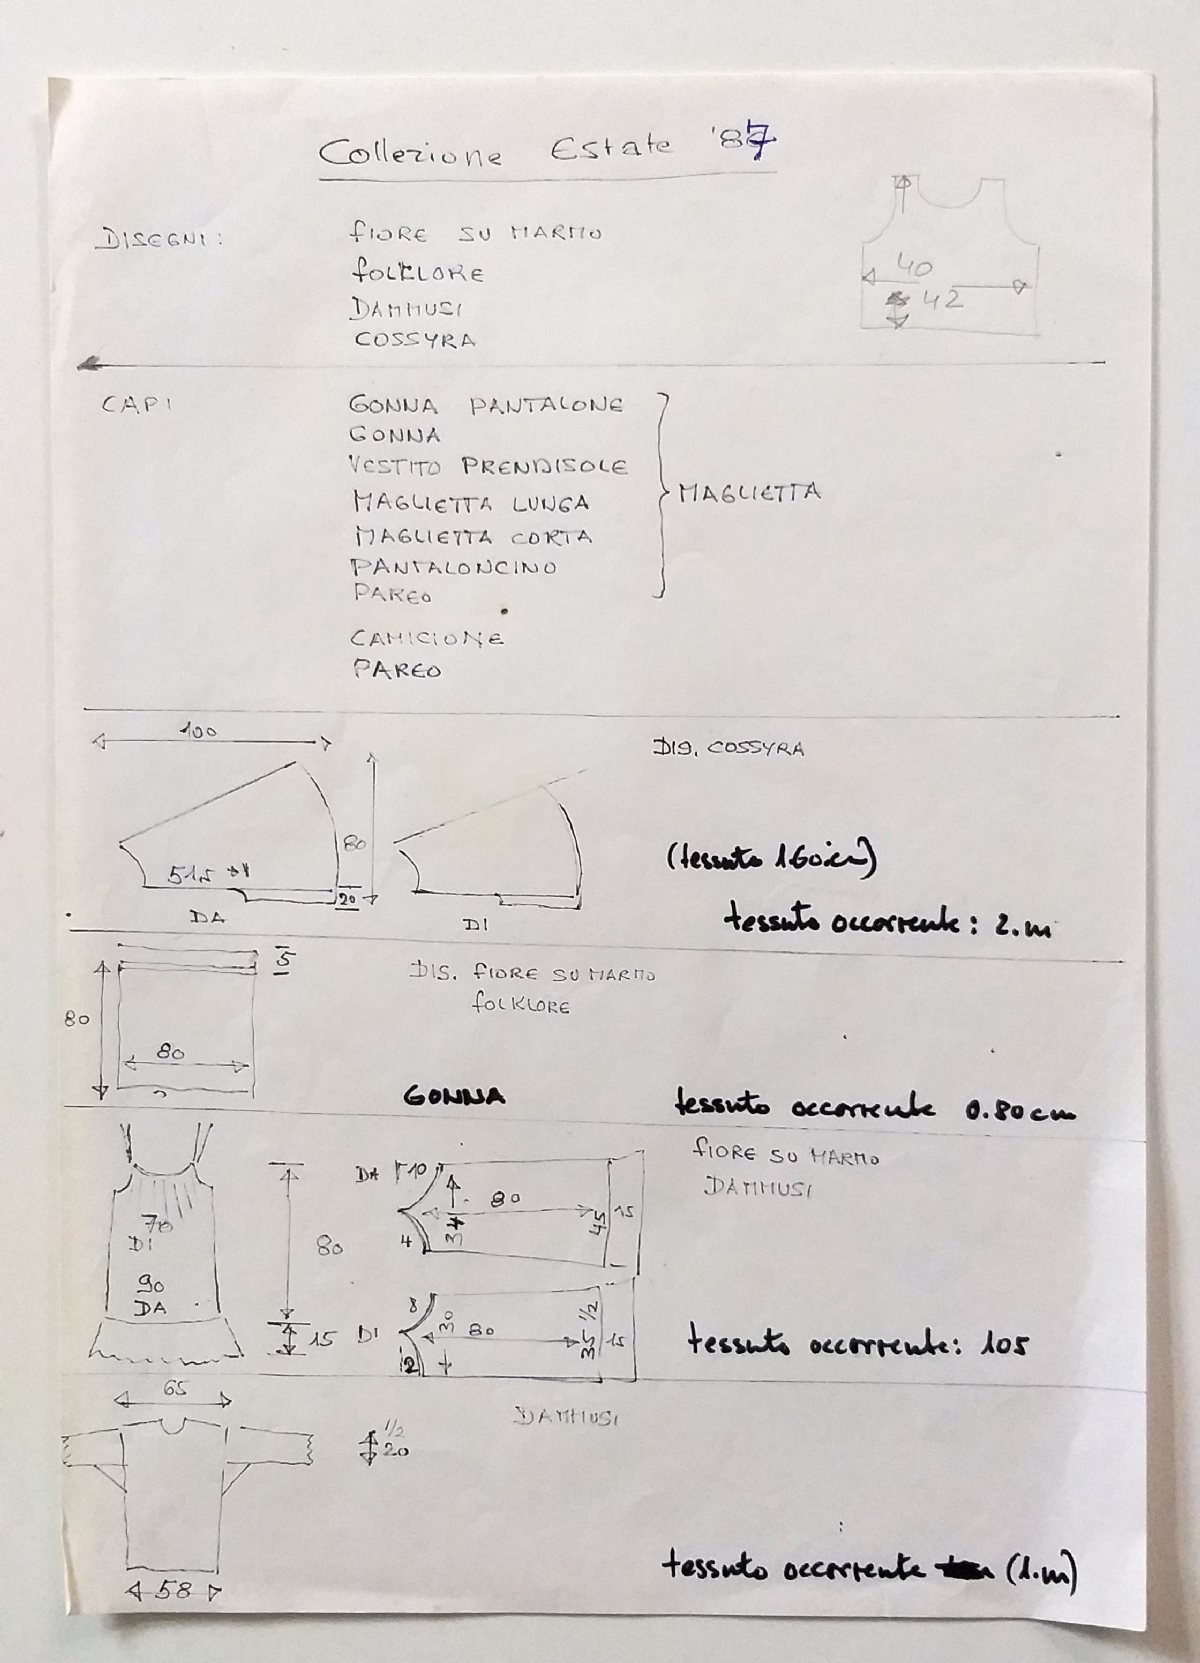 Collezione Estate '87
DISEGNI: FIORE SU MARMO
FOLKLORE
DAMMUSI
COSSYRA
40
42
CAPI GONNA PANTALONE
GONNA
VESTITO PRENDISOLE
MAGLIETTA LUNGA
MAGLIETTA CORTA
PANTALONCINO
PAREO
MAGLIETTA
CAMICIONE
PAREO
100
DIS. COSSYRA
80
51,5
20
DA
DI
(tessuto 160 cm)
tessuto occorrente: 2.m
5
80
80
DIS. FIORE SU MARMO
FOLKLORE
GONNA
tessuto occorrente 0.80cm
70
DI
90
DA
80
15
DA 10
80
45
15
34
4
FIORE SU MARMO
DAMMUSI
DI
8
30
80
35 1/2
15
12
tessuto occorrente: 105
65
DAMMUSI
1/2
20
58
tessuto occorrente (1.m)